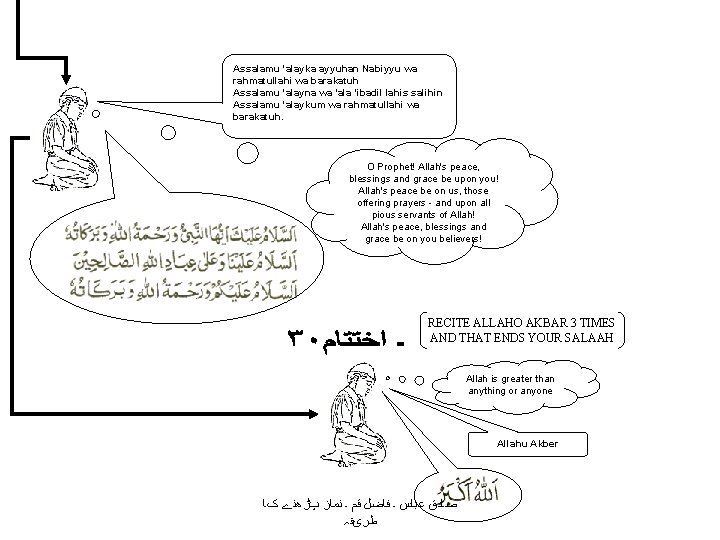 Assalamu 'alayka ayyuhan Nabiyyu wa
rahmatullahi wa barakatuh
Assalamu 'alayna wa 'ala 'ibadil lahis salihin
Assalamu 'alaykum wa rahmatullahi wa
barakatuh.
O Prophet! Allah's peace,
blessings and grace be upon you!
Allah's peace be on us, those
offering prayers - and upon all
pious servants of Allah!
Allah's peace, blessings and
grace be on you believers!
اَلسَّلَامُ عَلَيْكَ اَيُّهَا النَّبِيُّ وَرَحْمَةُ اللهِ وَبَرَكَاتُهُ
اَلسَّلَامُ عَلَيْنَا وَعَلىٰ عِبَادِ اللهِ الصَّالِحِيْنَ
اَلسَّلَامُ عَلَيْكُمْ وَرَحْمَةُ اللهِ وَبَرَكَاتُهُ
۳۰ ۔ اختتام
RECITE ALLAHO AKBAR 3 TIMES
AND THAT ENDS YOUR SALAAH
Allah is greater than
anything or anyone
Allahu Akber
اَللهُ اَكْبَرُ
عباس ۔ فاضل قم ۔ نماز پڑھنے کا
طریقہ